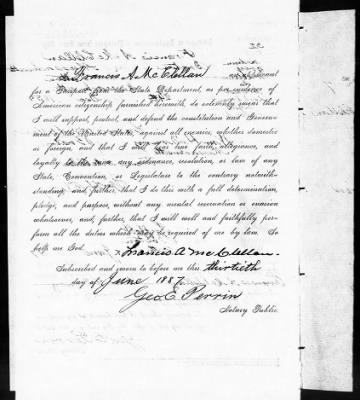 I, Francis A. McClellan, an applicant
for a Passport from the State Department, as per evidence of
American citizenship furnished herewith, do solemnly swear that
I will support, protect, and defend the constitution and Govern-
ment of the United States, against all enemies, whether domestic
or foreign, and that I will bear true faith, allegiance, and
loyalty to the same, any ordinance, resolution, or law of any
State, Convention, or Legislature to the contrary notwith-
standing; and further, that I do this with a full determination,
pledge, and purpose, without any mental reservation or evasion
whatsoever, and, further, that I will well and faithfully per-
form all the duties which may be required of me by law. So
help me God.
Francis A McClellan.
Subscribed and sworn to before me this thirtieth
day of June 1887.
Geo. E. Perrin
Notary Public.